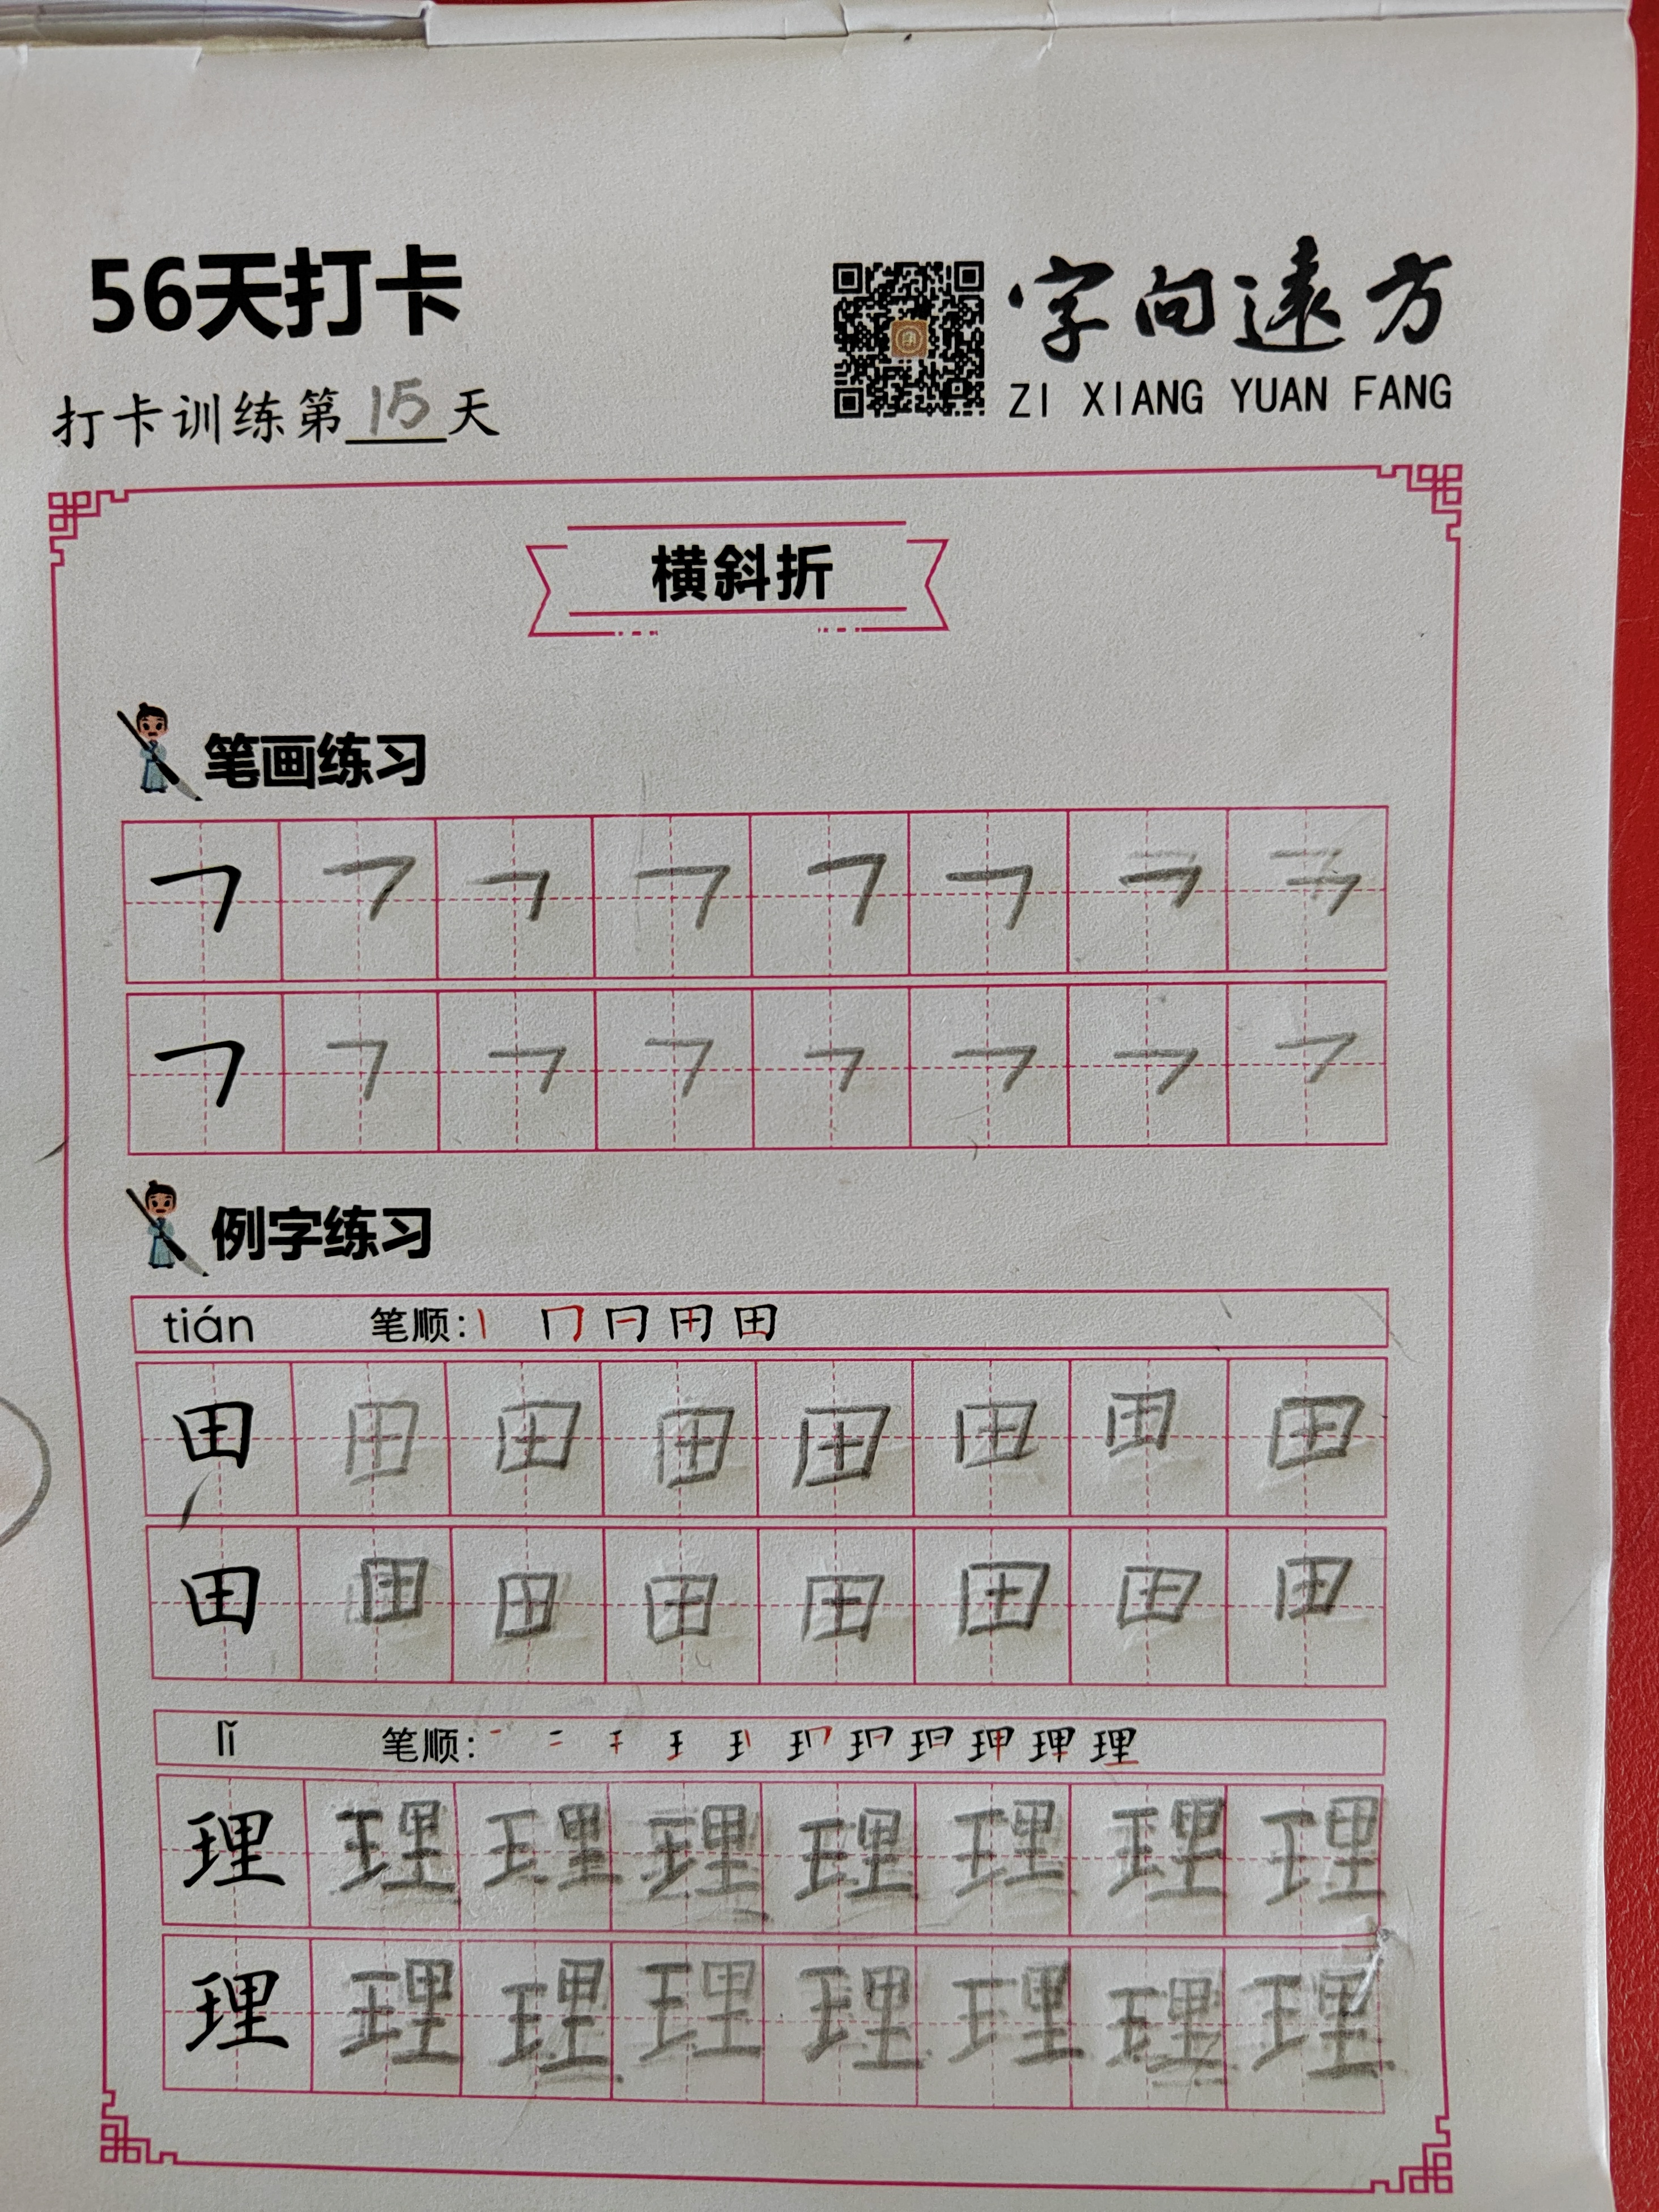 56天打卡
字向遠方
ZI XIANG YUAN FANG
打卡训练第15天
横斜折
笔画练习
㇕ ㇕ ㇕ ㇕ ㇕ ㇕ ㇕ ㇕
㇕ ㇕ ㇕ ㇕ ㇕ ㇕ ㇕ ㇕
例字练习
tián 笔顺:丨 冂 冃 田
田 田 田 田 田 田 田 田
田 田 田 田 田 田 田 田
lǐ 笔顺:
理 理 理 理 理 理 理 理
理 理 理 理 理 理 理 理